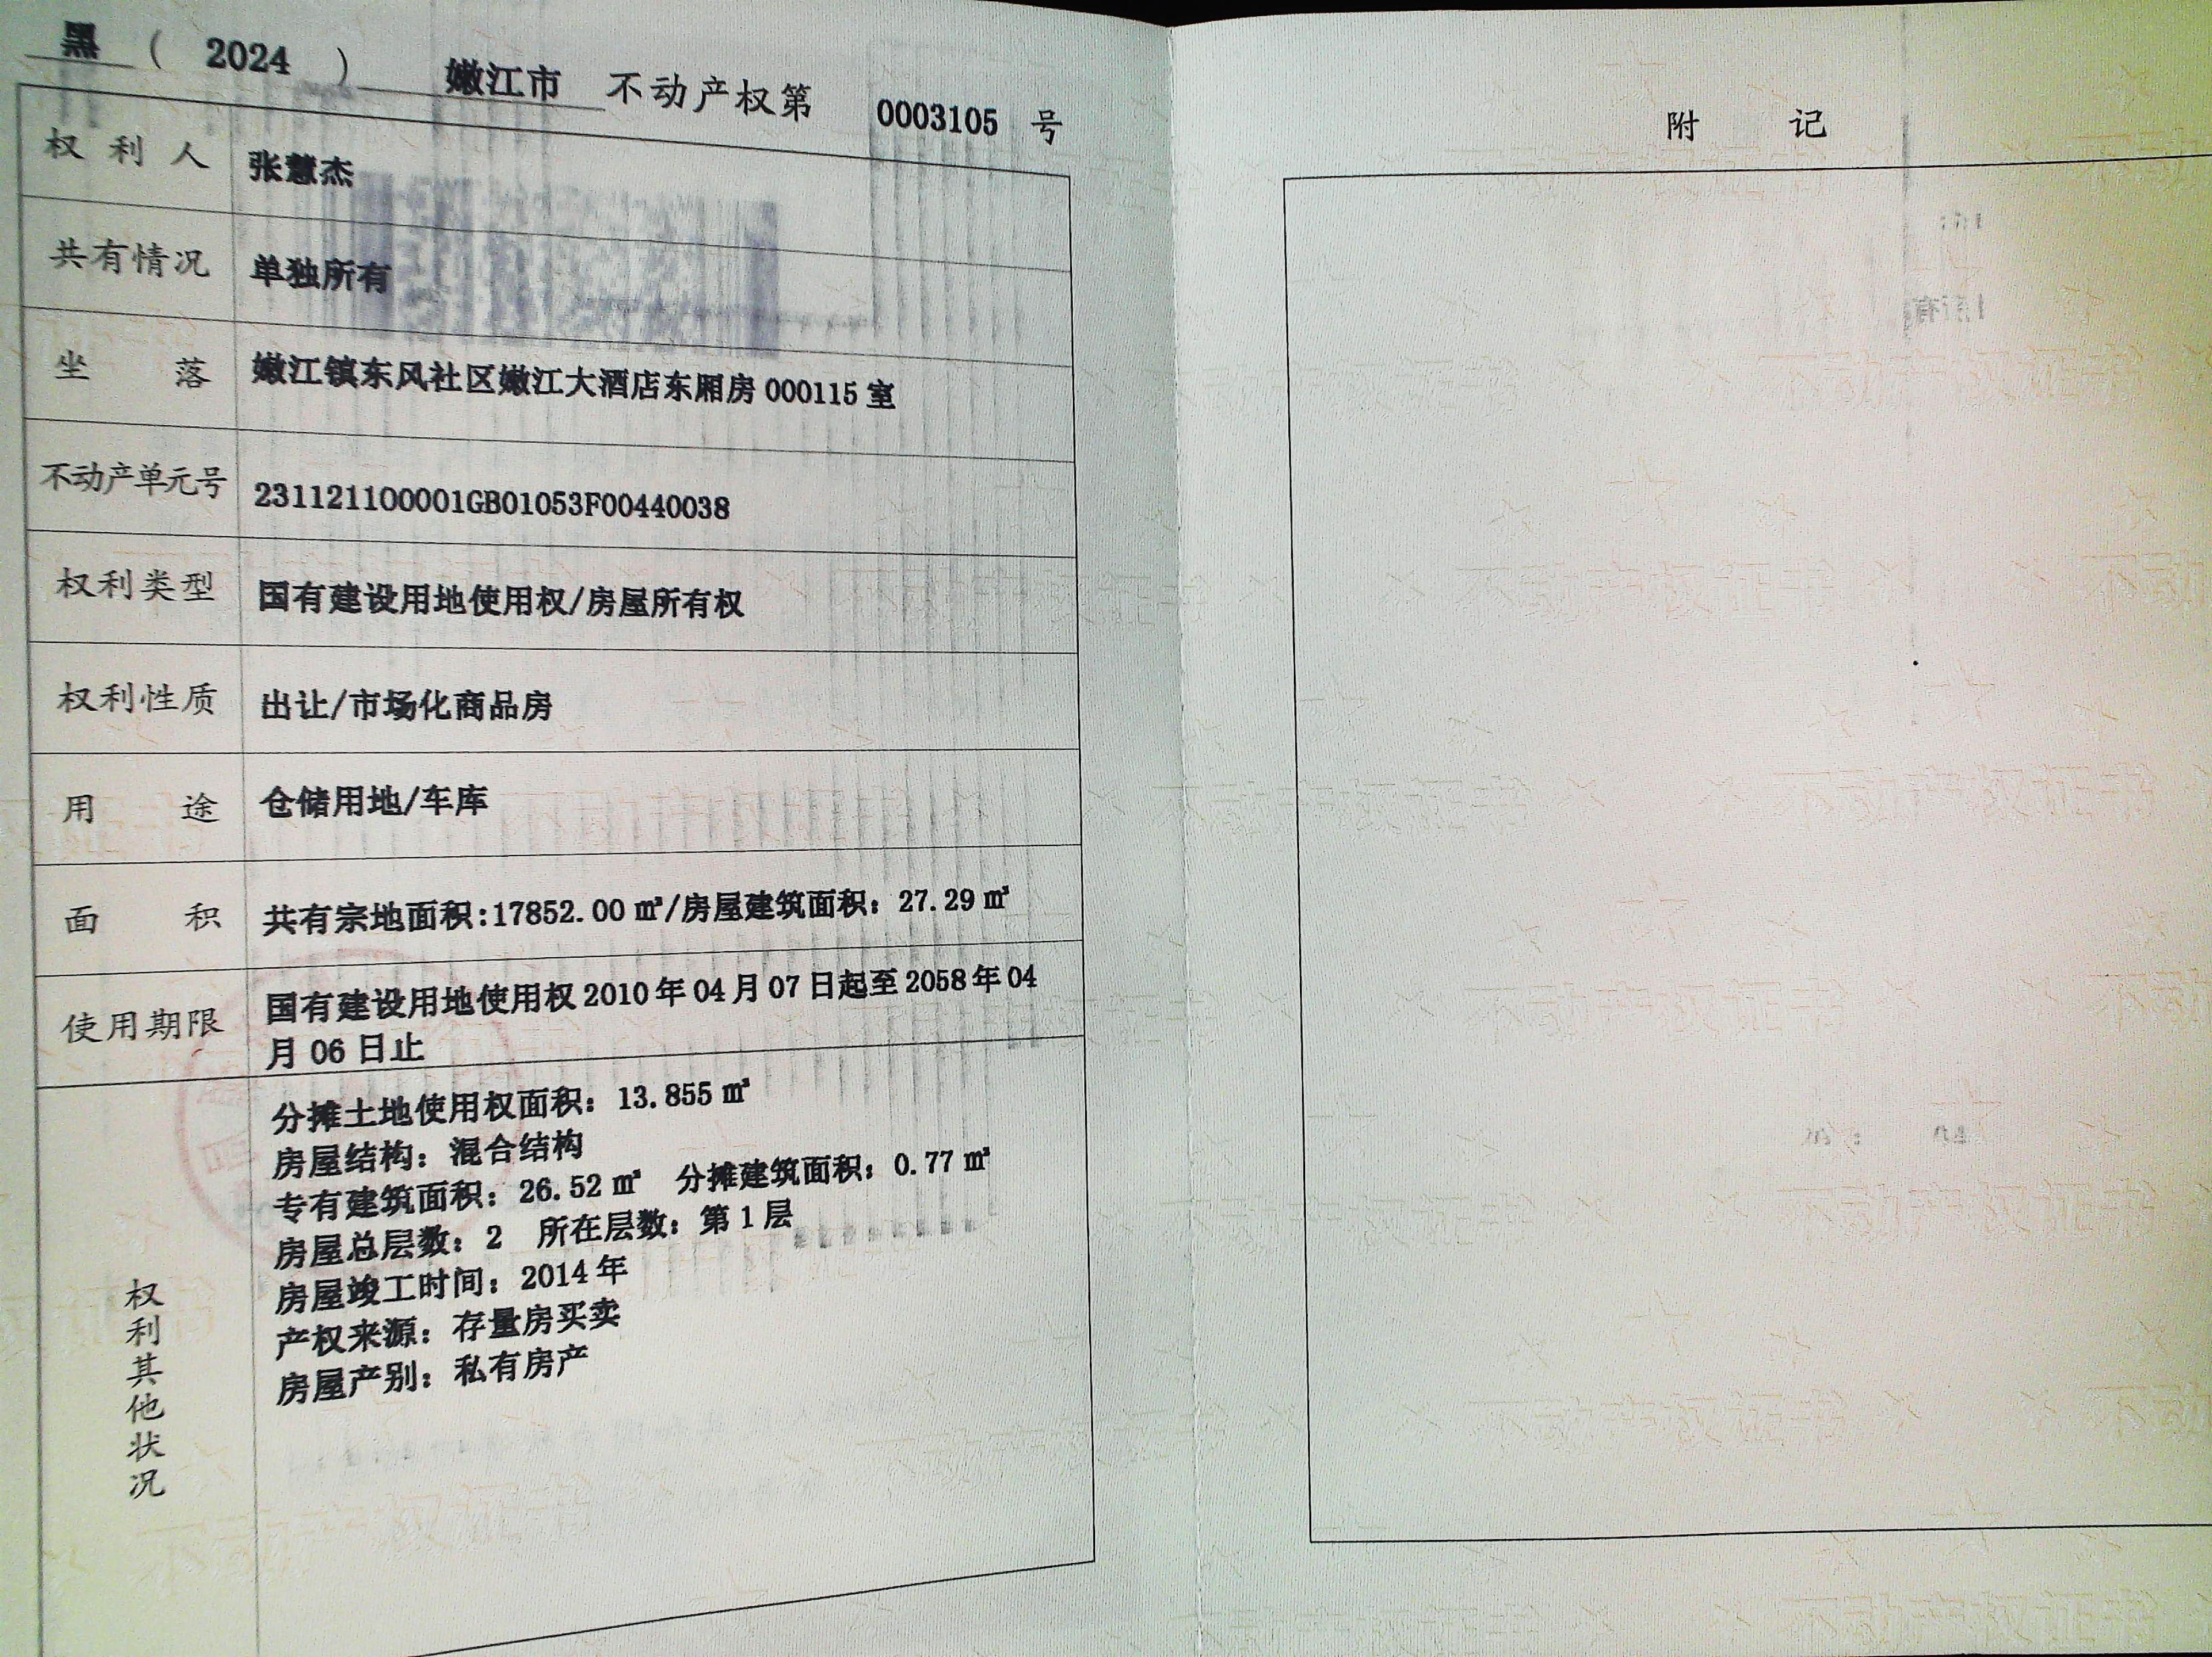 黑 ( 2024 ) 嫩江市 不动产权第 0003105 号
权利人 张慧杰
共有情况 单独所有
坐落 嫩江镇东风社区嫩江大酒店东厢房 000115 室
不动产单元号 231121100001GB01053F00440038
权利类型 国有建设用地使用权/房屋所有权
权利性质 出让/市场化商品房
用途 仓储用地/车库
面积 共有宗地面积:17852.00 ㎡/房屋建筑面积：27.29 ㎡
使用期限 国有建设用地使用权 2010 年 04 月 07 日起至 2058 年 04
月 06 日止
权利其他状况
分摊土地使用权面积：13.855 ㎡
房屋结构：混合结构
专有建筑面积：26.52 ㎡ 分摊建筑面积：0.77 ㎡
房屋总层数：2 所在层数：第 1 层
房屋竣工时间：2014 年
产权来源：存量房买卖
房屋产别：私有房产
附记